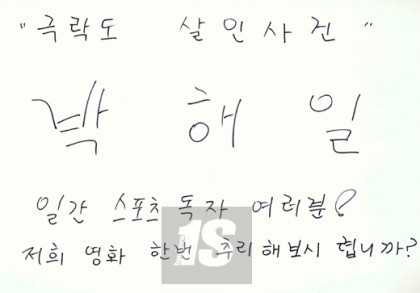 "극락도 살인사건"
박해일
일간 스포츠 독자 여러분!
저희 영화 한번 추리해보시렵니까?
IS